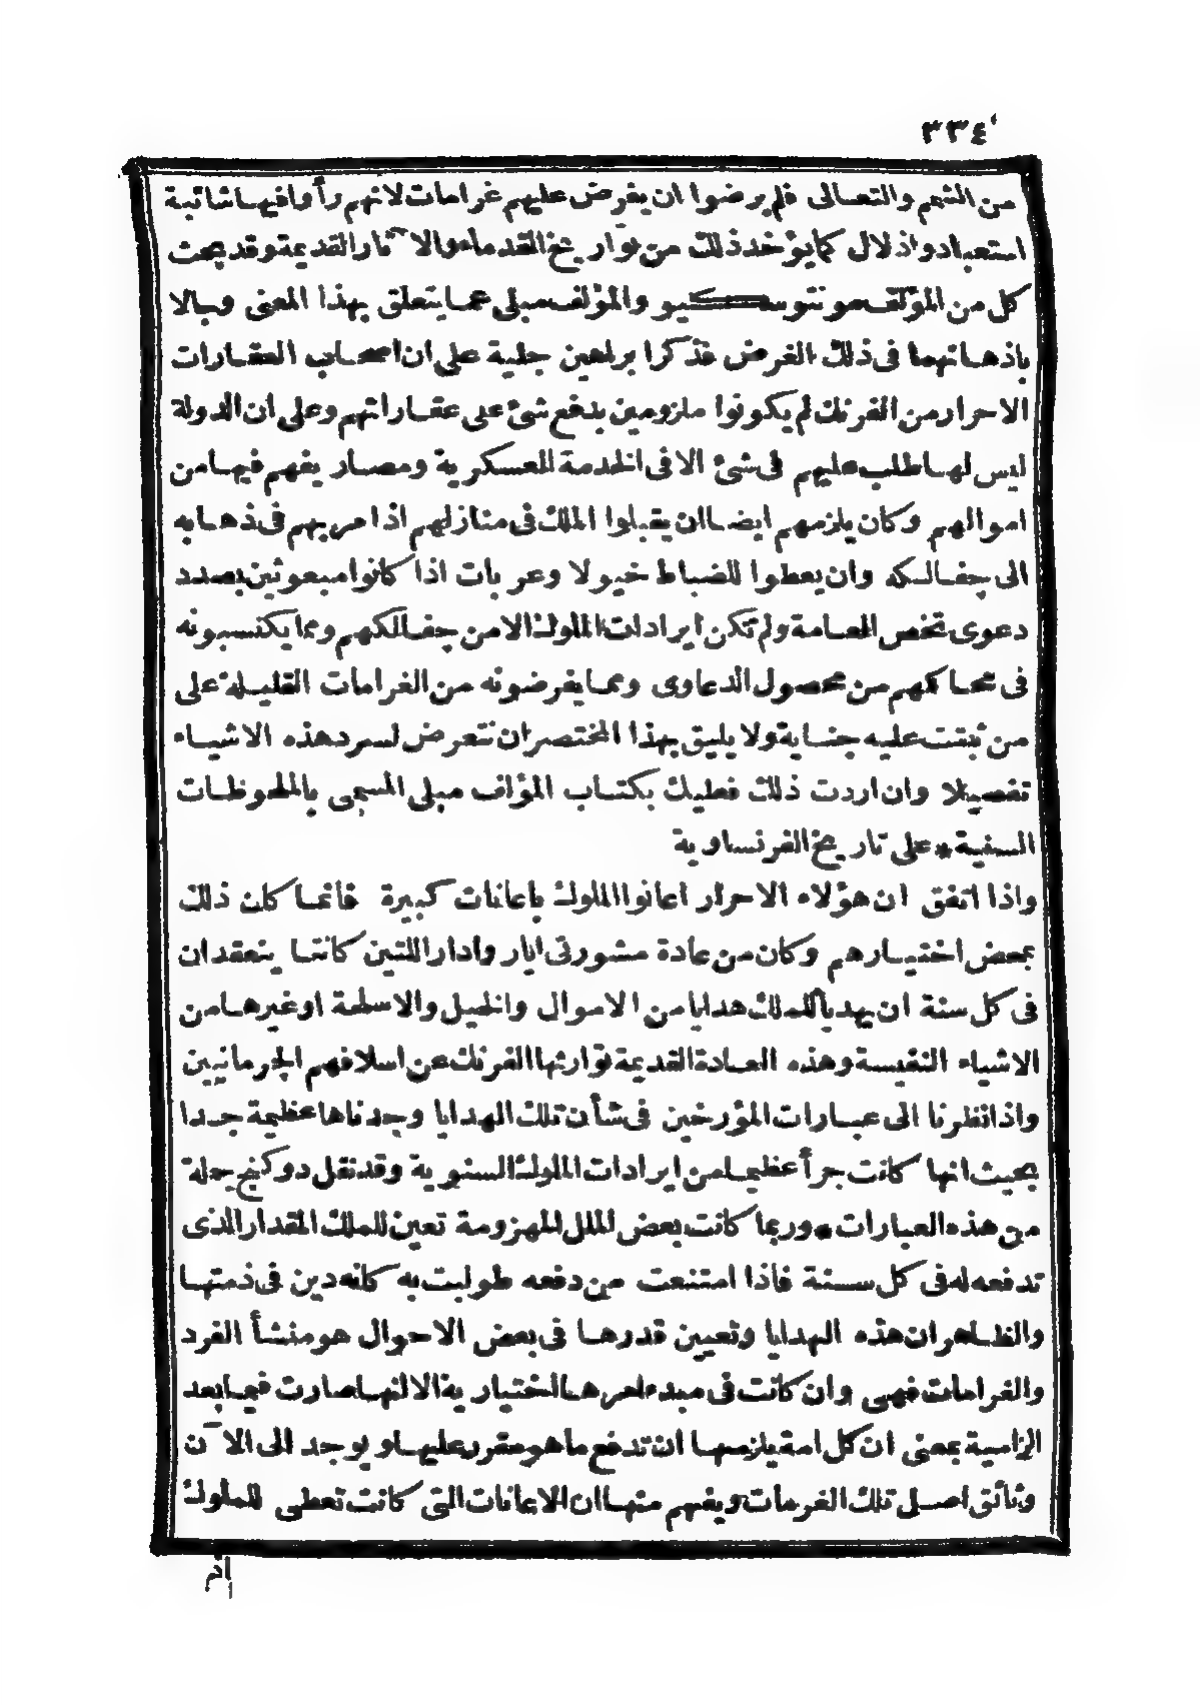 ٣٣٤
من الشهم والتعالى فلم يرضوا ان يفرض عليهم غرامات لانهم رأوا فيها شائبة
استعباد واذلال كما يؤخذ ذلك من تواريخ القدماء والآثار القديمة وقد بحث
كل من المؤلف مونتوسكيو والمؤلف مبلى عما يتعلق بهذا المعنى وبالا
باذهانهما فى ذلك الغرض فذكرا براهين جلية على ان اصحاب العقارات
الاحرار من الفرنك لم يكونوا ملزومين بدفع شئ على عقاراتهم وعلى ان الدولة
ليس لها طلب عليهم فى شئ الا فى الخدمة العسكرية ومصار يفهم فيها من
اموالهم وكان يلزمهم ايضا ان يقبلوا الملك فى منازلهم اذا مر بهم فى ذهابه
الى جفالكه وان يعطوا للضباط خيولا وعربات اذا كانوا مبعوثين بصدد
دعوى تخص العامة ولم تكن ايرادات الملوك الا من جفالكهم ومما يكتسبونه
فى محاكمهم من محصول الدعاوى ومما يفرضونه من الغرامات القليلة على
من ثبتت عليه جناية ولا يليق بهذا المختصر ان نتعرض لسرد هذه الاشياء
تفصيلا وان اردت ذلك فعليك بكتاب المؤلف مبلى المسمى بالملحوظات
السنية * على تاريخ الفرنساوية
واذا اتفق ان هؤلاء الاحرار اعانوا الملوك باعانات كبيرة فانما كان ذلك
بمحض اختيارهم وكان من عادة مشورتى ايار وادار اللتين كانتا ينعقدان
فى كل سنة ان يهديا للملك هدايا من الاموال والخيل والاسلحة او غيرها من
الاشياء النفيسة وهذه العادة القديمة توارثها الفرنك عن اسلافهم الجرمانيين
واذا نظرنا الى عبارات المؤرخين فى شأن تلك الهدايا وجدناها عظيمة جدا
بحيث انها كانت جزأ عظيما من ايرادات الملوك السنوية وقد نقل دوكنج جملة
من هذه العبارات * وربما كانت بعض الملل المهزومة تعين للملك المقدار الذى
تدفعه له فى كل سنة فاذا امتنعت من دفعه طولبت به كانه دين فى ذمتها
والظاهر ان هذه الهدايا وتعيين قدرها فى بعض الاحوال هو منشأ الفرد
والغرامات فهى وان كانت فى مبدء امرها اختيارية الا انها صارت فيما بعد
الزامية بمعنى ان كل امة يلزمها ان تدفع ما هو مقرر عليها ويوجد الى الآن
وثائق اصل تلك الغرمات ويفهم منها ان الاعانات التى كانت تعطى للملوك